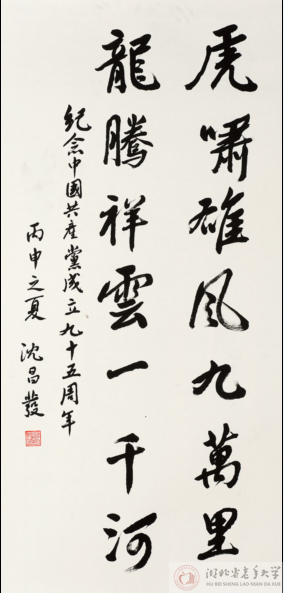 虎嘯雄风九萬里
龍騰祥雲一千河
紀念中國共產黨成立九十五周年
丙申之夏 沈昌發
湖北省老年大学
HU BEI SHENG LAO NIAN DA XUE